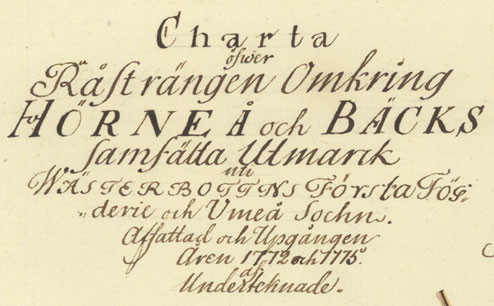 Charta
öfwer
Råsträngen Omkring
HÖRNEÅ och BÄCKS
samfälta Utmarck
uti
WÄSTERBOTTNS Första Fög-
derie och Umeå Sochn.
Affattad och Upgången
Åren 1772 och 1775.
af
Underteknade.